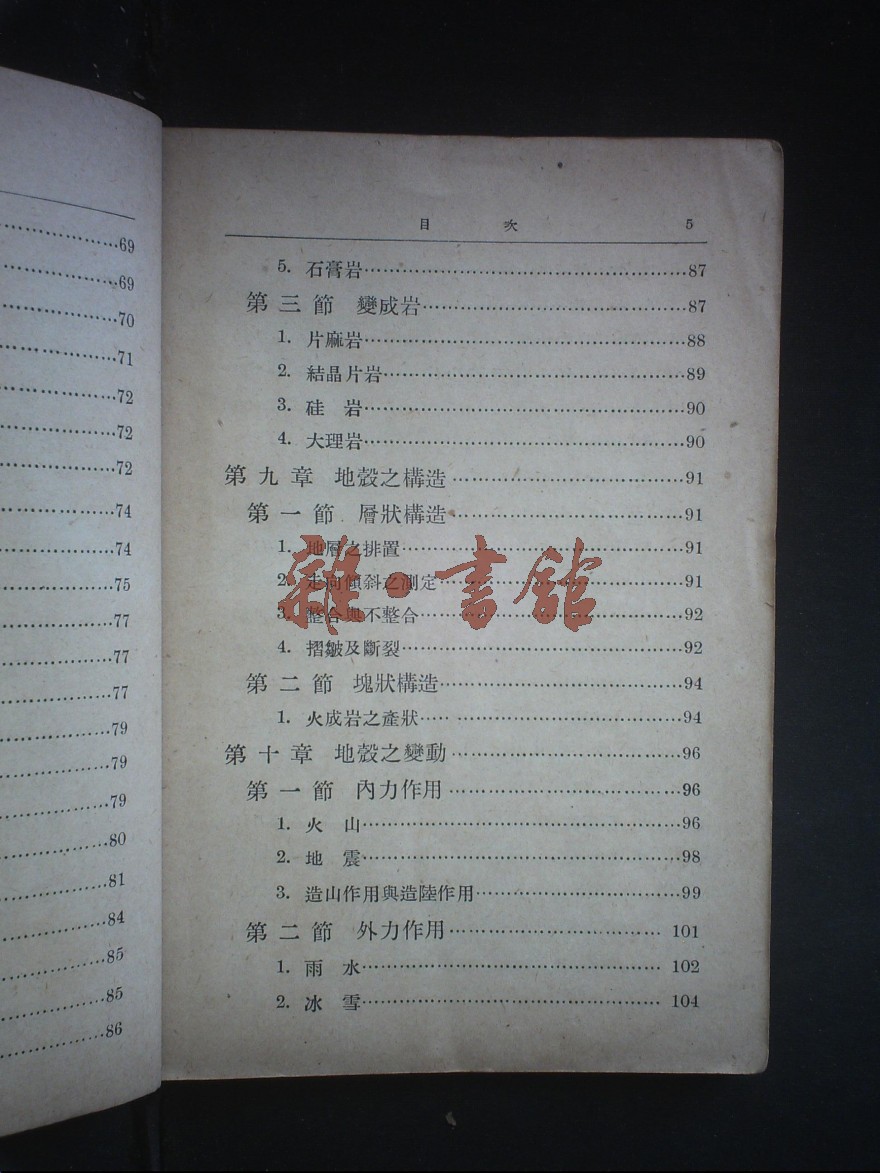 69
69
70
71
72
72
72
74
74
75
77
77
77
79
79
79
80
81
84
85
85
86
目 次 5
5. 石膏岩 87
第三節 變成岩 87
1. 片麻岩 88
2. 結晶片岩 89
3. 硅 岩 90
4. 大理岩 90
第九章 地殼之構造 91
第一節 層狀構造 91
1. 地層之排置 91
2. 走向傾斜之測定 91
3. 整合與不整合 92
4. 摺皺及斷裂 92
第二節 塊狀構造 94
1. 火成岩之產狀 94
第十章 地殼之變動 96
第一節 內力作用 96
1. 火 山 96
2. 地 震 98
3. 造山作用與造陸作用 99
第二節 外力作用 101
1. 雨 水 102
2. 冰 雪 104
雜·書館